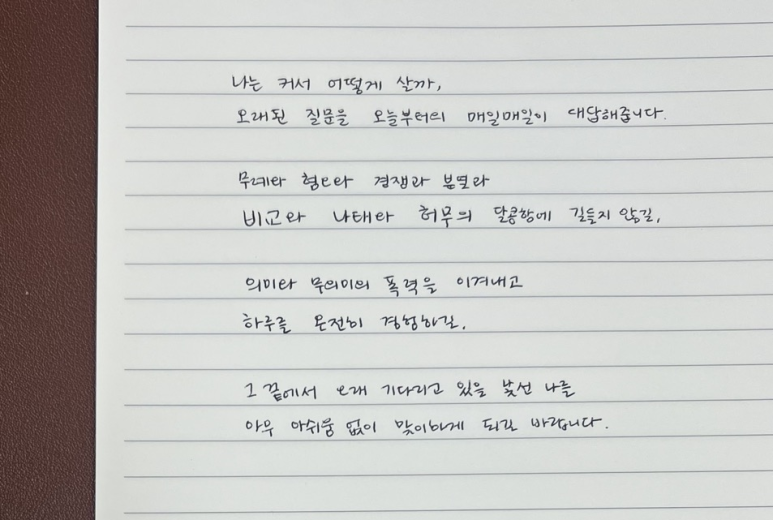 나는 커서 어떻게 살까,
오래된 질문을 오늘부터의 매일매일이 대답해줍니다.
무례와 혐오와 경쟁과 분열과
비교와 나태와 허무의 달콤함에 길들지 않길,
의미와 무의미의 폭력을 이겨내고
하루를 온전히 경험하길.
그 끝에서 오래 기다리고 있을 낯선 나를
아무 아쉬움 없이 맞이하게 되길 바랍니다.